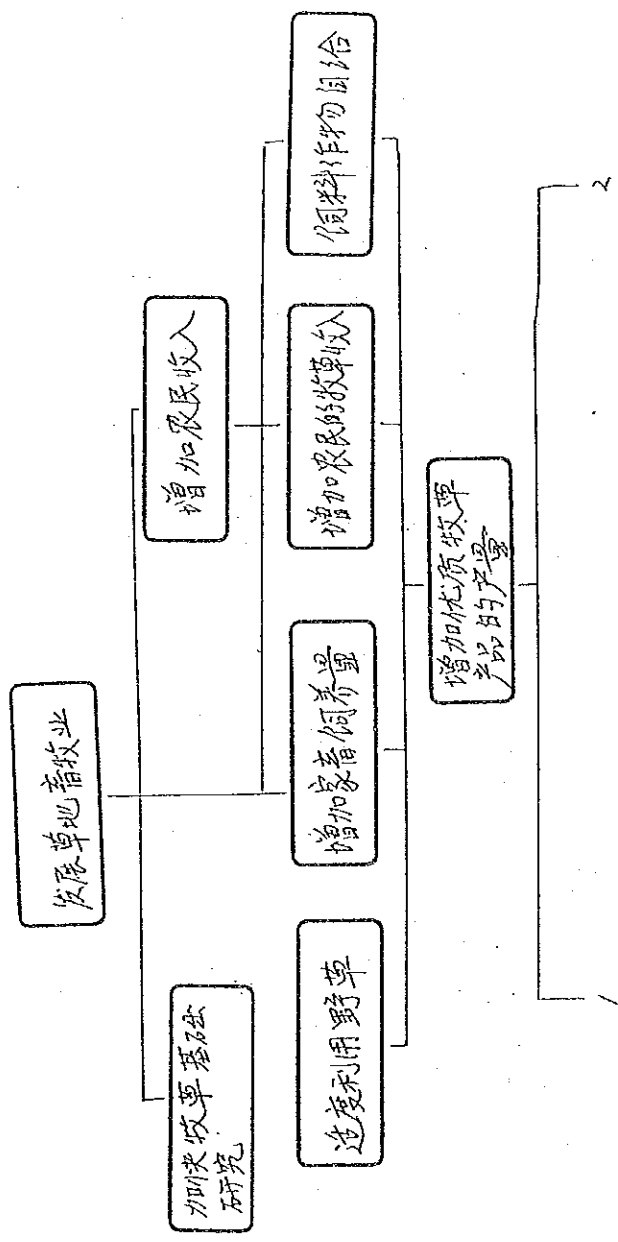 发展草地畜牧业
加快牧草基础
研究
增加农民收入
适度利用野草
增加家畜饲养量
增加农民的牧草收入
饲料作物自给
增加优质牧草
产品的产量
1
2